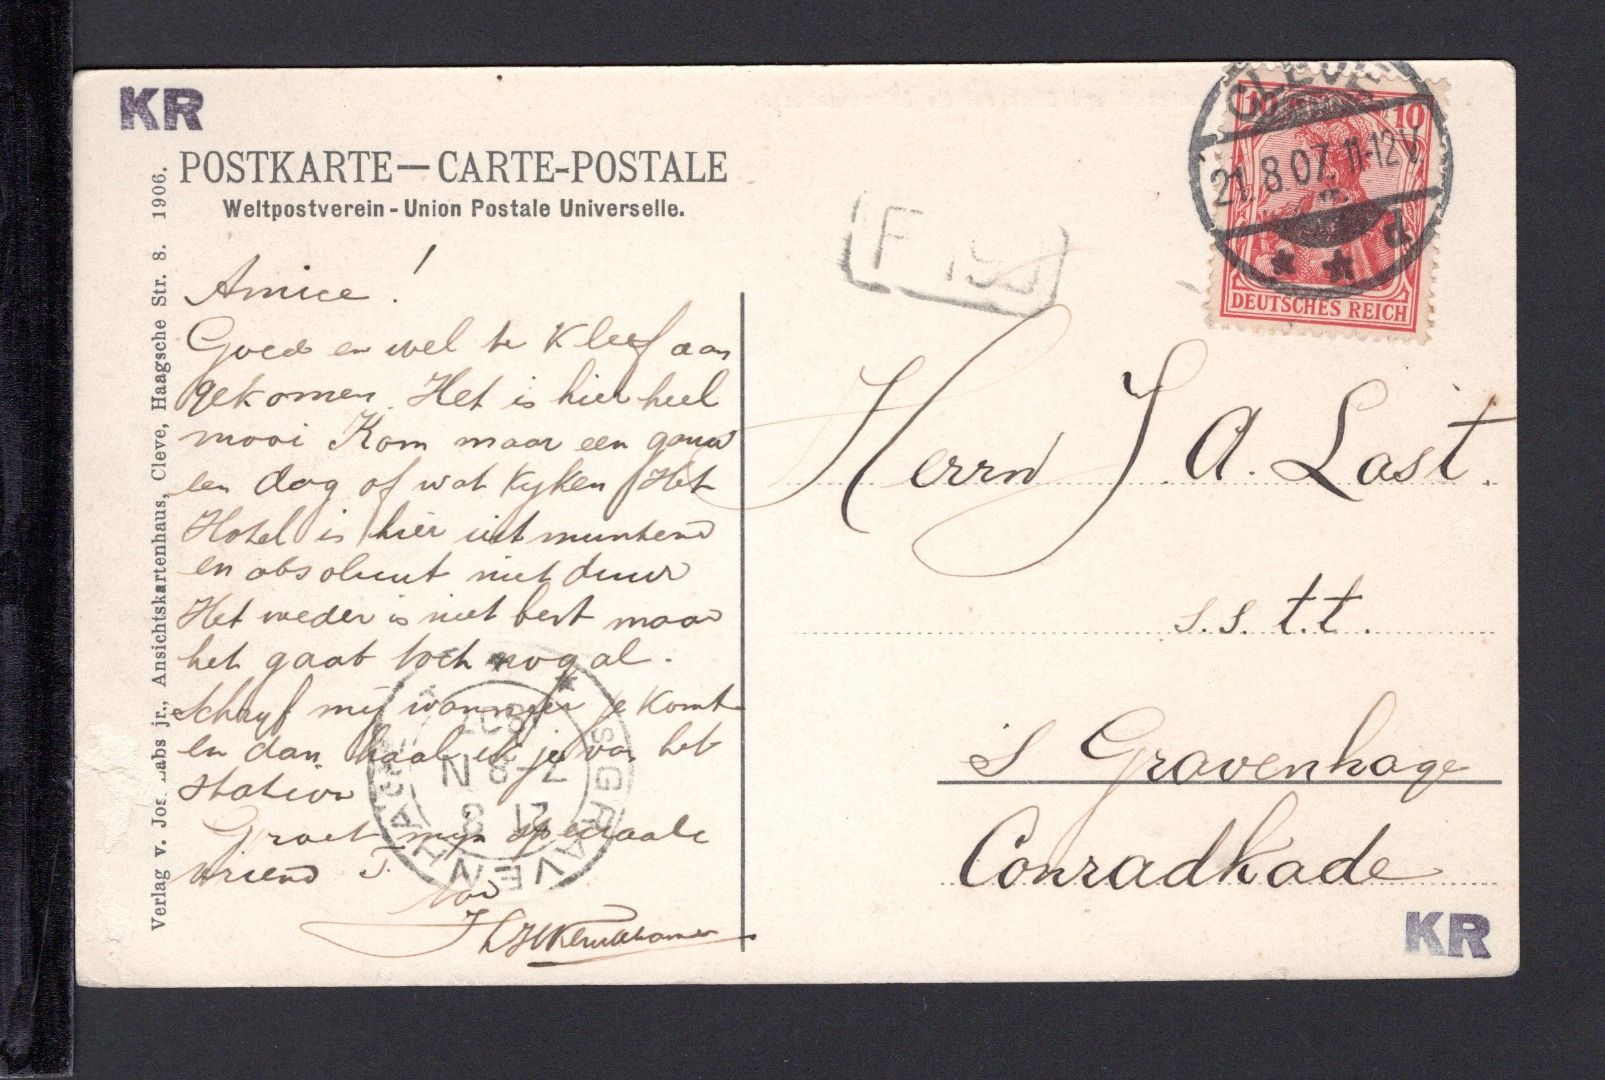 KR
POSTKARTE — CARTE-POSTALE
Weltpostverein - Union Postale Universelle.
Verlag v. Jos. Labs jr., Ansichtskartenhaus, Cleve, Haagsche Str. 8. 1906.
Amice!
Goed en wel te Kleef aan
gekomen. Het is hier heel
mooi Kom maar een gauw
een dag of wat kyken Het
Hotel is hier uitmuntend
en absoluut niet duur
Het weder is niet best maar
het gaat toch nog al.
Schryf mij wanneer je komt
en dan haal ik je van het
station
Groet mijn speciaale
vriend J.
CLEVE
21.8.07.11-12V.
d
10 10
DEUTSCHES REICH
F
Herrn J A. Last.
s.s. t.t.
s Gravenhage
Conradkade
'S GRAVENHAGE
21 8
7-8 N
KR